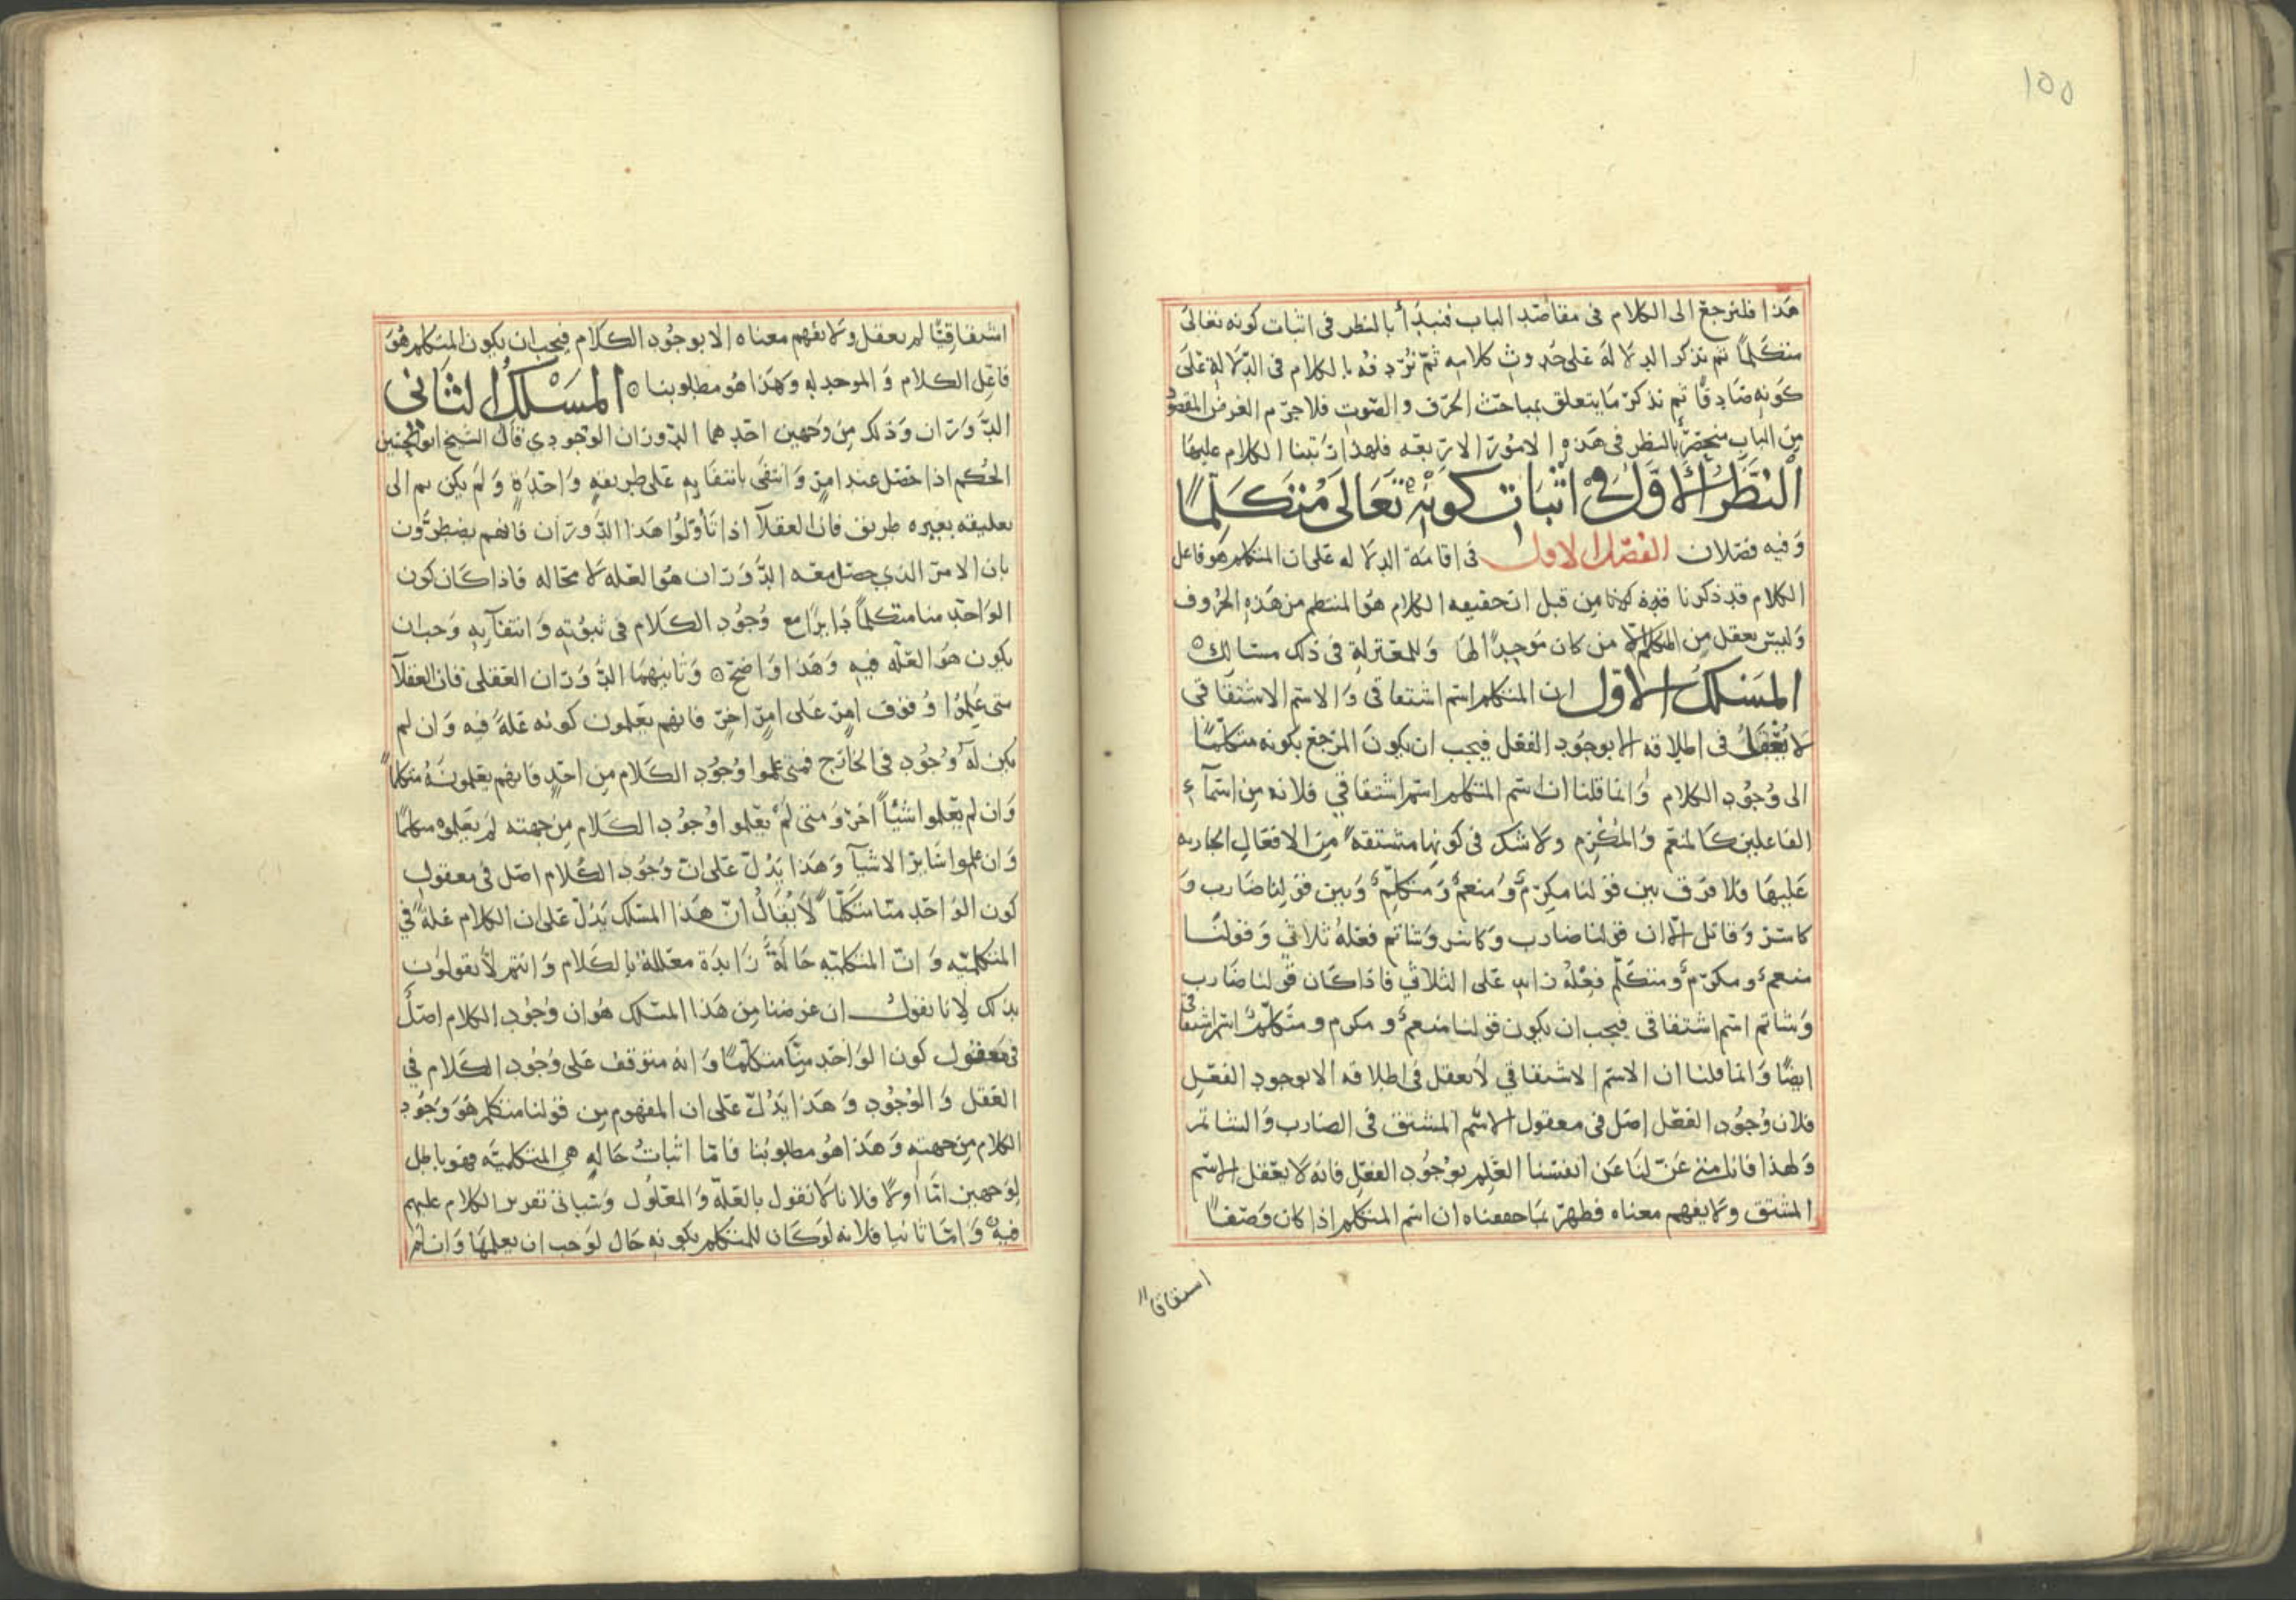 ١٥٥
هذا فلنرجع الى الكلام فى مقاصد الباب فنبدأ بالنظر فى اثبات كونه تعالى
متكلما ثم نذكر الدلالة على حدوث كلامه ثم نردفه بالكلام فى الدلالة على
كونه صادقا ثم نذكر ما يتعلق بمباحث الحرف والصوت فلا جرم الغرض المقصود
من الباب منحصر بالنظر فى هذه الامور الاربعه فلهذا رتبنا الكلام عليها
النظر الاول فى اثبات كونه تعالى متكلما
وفيه فصلان الفصل الاول فى اقامة الدلاله على ان المتكلم هو فاعل
الكلام قد ذكرنا من قبل ان حقيقه الكلام هو المنتظم من هذه الحروف
وليس يعقل من المتكلم الا من كان موجدا لها وللمعتزلة فى ذلك مسالك
المسلك الاول ان المتكلم اسم اشتقاقى والاسم الاشتقاقى
لا يعقل فى اطلاقه الا بوجود الفعل فيجب ان يكون المرجع بكونه متكلما
الى وجود الكلام وانما قلنا ان اسم المتكلم اسم اشتقاقي فلانه من اسمآء
الفاعلين كالمنعم والمكرم ولا شك فى كونها مشتقة من الافعال الجاريه
عليها فلا فرق بين قولنا مكرم ومنعم ومتكلم وبين قولنا ضارب و
كاسر وقاتل الا ان قولنا ضارب وكاسر وشاتم فعله ثلاثي وقولنا
منعم ومكرم ومتكلم فعله زايد على الثلاثي فاذا كان قولنا ضارب
وشاتم اسم اشتقاقى فيجب ان يكون قولنا منعم ومكرم ومتكلم اسم اشتقاقى
ايضا وانما قلنا ان الاسم الاشتقاقي لا يعقل فى اطلاقه الا بوجود الفعل
فلان وجود الفعل اصل فى معقول الاسم المشتق فى الضارب والشاتم
ولهذا فاننا متى عزلنا عن انفسنا العلم بوجود الفعل فانه لا يعقل الاسم
المشتق ولا يفهم معناه فظهر بما حققناه ان اسم المتكلم اذا كان وصفا
اشتقاقا
اشتقاقيا لم يعقل ولا يفهم معناه الا بوجود الكلام فيجب ان يكون المتكلم هو
فاعل الكلام والموجد له وهذا هو مطلوبنا المسلك الثانى
الدوران وذلك من وجهين احدهما الدوران الوجودي قال الشيخ ابو الحسين
الحكم اذا حصل عند امر وانتفى بانتفايه على طريقه واحدة ولم يكن ثم الى
تعليقه بغيره طريق فان العقلآ اذا تأولوا هذا الدوران فانهم يضطرون
بان الامر الذي حصل معه الدوران هو العله لا محاله فاذا كان كون
الواحد منا متكلما دايرا مع وجود الكلام فى ثبوته وانتفآيه وجب ان
يكون هو العله فيه وهذا واضح وثانيهما الدوران العقلى فان العقلآ
متى علموا وقوف امر على امر اخر فانهم يعلمون كونه علة فيه وان لم
يكن له وجود فى الخارج فمتى علموا وجود الكلام من احد فانهم يعلمونه متكلما
وان لم يعلموا شيئا اخر ومتى لم يعلموا وجود الكلام من جهته لم يعلموه متكلما
وان علموا ساير الاشيآ وهذا يدل على ان وجود الكلام اصل فى معقول
كون الواحد منا متكلما لا يقال ان هذا المسلك يدل على ان الكلام علة في
المتكلميه وان المتكلميه حالة زايدة معللة بالكلام وانتم لا تقولون
بذلك لانا نقول ان غرضنا من هذا المسلك هو ان وجود الكلام اصل
فى معقول كون الواحد منا متكلما وانه متوقف على وجود الكلام في
العقل والوجود وهذا يدل على ان المفهوم من قولنا متكلم هو وجود
الكلام من جهته وهذا هو مطلوبنا فاما اثبات حاله هى المتكلميه فهو باطل
لوجهين اما اولا فلانا لا نقول بالعلة والمعلول وسياتى تقرير الكلام عليهم
فيه واما ثانيا فلانه لو كان للمتكلم بكونه حال لوجب ان يعلمها وان لم